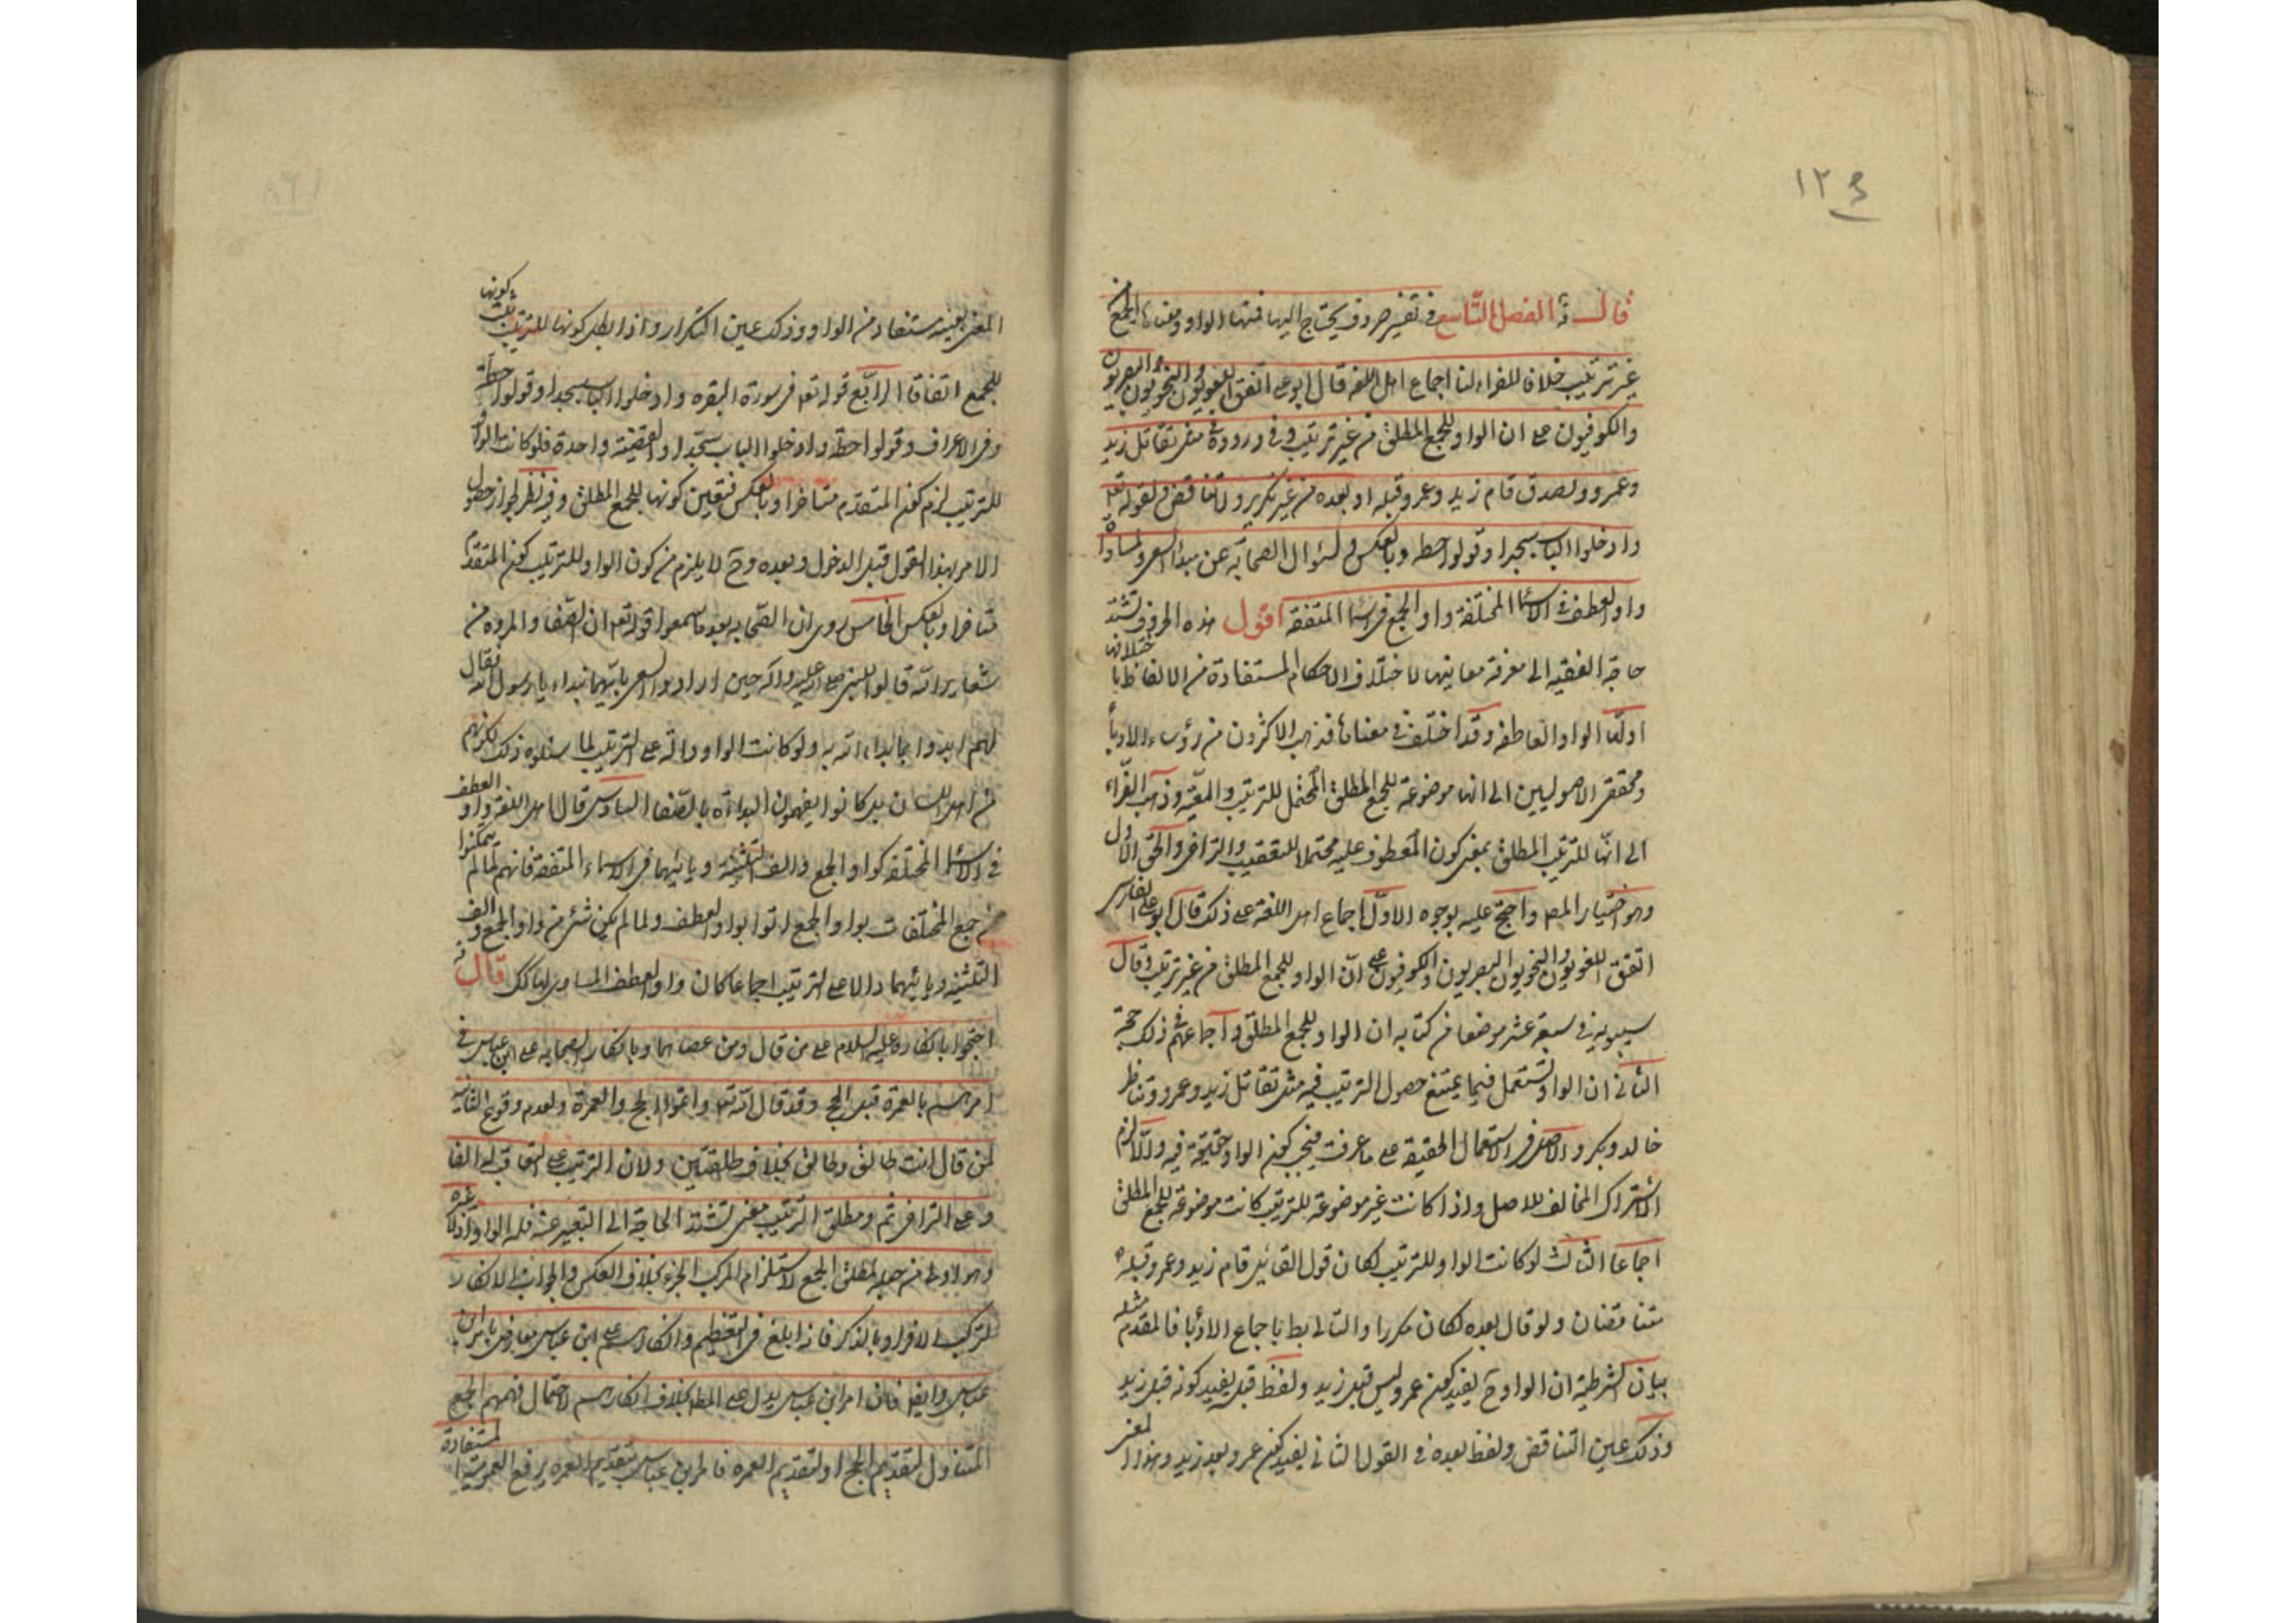 ١٢٥
قال ؒ الفصل التاسع في تفسير حروف يحتاج اليها فمنها الواو ومعناها الجمع من
غير ترتيب خلافا للفراء لنا اجماع اهل اللغة قال ابو على اتفق اللغويون والنحويون البصريون
والكوفيون على ان الواو للجمع المطلق من غير ترتيب وفي وروده في مثل تقاتل زيد
وعمرو ولصدق قام زيد وعمرو قبله او بعده من غير تكرير ولا تناقض لقوله تع
وادخلوا الباب سجدا وقولوا حطه وبالعكس ولسؤال الصحابة عن مبدأ السعى ولمساواة
واو العطف في الاسماء المختلفة واو الجمع في الاسماء المتفقة اقول هذه الحروف تشتد
حاجة الفقيه الى معرفة معانيها لاختلاف الاحكام المستفادة من الالفاظ باختلافها
اولها الواو العاطفه وقد اختلف في معناها فذهب الاكثرون من رؤساء الادباء
ومحققى الاصوليين الى انها موضوعة للجمع المطلق المحتمل للترتيب والمعية وذهب الفراء
الى انها للترتيب المطلق بمعنى كون المعطوف عليه محتملا للتعقيب والتراخى والحق الاول
وهو اختيار المص واحتج عليه بوجوه الاول اجماع اهل اللغة على ذلك قال ابو على الفارسى
اتفق اللغويون والنحويون البصريون والكوفيون على ان الواو للجمع المطلق من غير ترتيب وقال
سيبويه في سبعة عشر موضعا من كتابه ان الواو للجمع المطلق واجماعهم في ذلك حجة
الثانى ان الواو تستعمل فيما يمتنع حصول الترتيب فيه مثل تقاتل زيد وعمرو وتناظر
خالد وبكر والاصل في الاستعمال الحقيقة على ما عرفت فيجب كون الواو حقيقة فيه والا لزم
الاشتراك المخالف للاصل واذا كانت غير موضوعة للترتيب كانت موضوعة للجمع المطلق
اجماعا الثالث لو كانت الواو للترتيب لكان قول القائل قام زيد وعمرو قبله
متناقضان ولو قال بعده لكان مكررا والتالى بط باجماع الادباء فالمقدم مثله
بيان الشرطية ان الواو ح يفيد كون عمرو ليس قبل زيد ولفظ قبله يفيد كونه قبل زيد
وذلك عين التناقض ولفظ بعده في القول الثانى يفيد كون عمرو بعد زيد وهذا المعنى
المعنى بعينه مستفاد من الواو وذلك عين التكرار واذا بطل كونها للترتيب ثبت كونها
للجمع اتفاقا الرابع قوله تع في سورة البقره وادخلوا الباب سجدا وقولوا حطة
وفي الاعراف وقولوا حطة وادخلوا الباب سجدا والقضية واحدة فلو كانت الواو
للترتيب لزم كون المتقدم متاخرا وبالعكس فتعين كونها للجمع المطلق وفيه نظر لجواز حصول
الامر بهذا القول قبل الدخول وبعده وح لا يلزم من كون الواو للترتيب كون المتقدم
متاخرا وبالعكس الخامس روى ان الصحابه بعد ما سمعوا قوله تع ان الصفا والمروة من
شعاير الله قالوا للنبى صلى الله عليه وآله حين ارادوا السعى بايهما نبداء يا رسول الله فقال
لهم ابدوا بما بداء الله به ولو كانت الواو دالة على الترتيب لما سئلوه ذلك لكونهم
من اهل اللسان بل كانوا يفهمون البداءة بالصفا السادس قال اهل اللغة واو العطف
في الاسماء المختلفة كواو الجمع والف التثنية ويائيهما في الاسماء المتفقة فانهم لما لم يتمكنوا
من جمع المختلفات بواو الجمع اتوا بواو العطف ولما لم يكن شئ من واو الجمع والف
التثنية ويائيهما دالا على الترتيب اجماعا كان واو العطف المساوى لها كك قال ؒ
احتجوا بانكاره عليه السلام على من قال ومن عصاهما وبانكار الصحابه على ابن عباس في
امرهم بالعمرة قبل الحج وقد قال الله تع واتموا الحج والعمرة ولعدم وقوع الثانية
لمن قال انت طالق وطالق بخلاف طلقتين ولان الترتيب على التعاقب له الفا
وعلى التراخى ثم ومطلق الترتيب معنى تشتد الحاجة الى التعبير عنه فله الواو اذ لا غيره
وهو اولى من جعله لمطلق الجمع لاستلزام المركب الجزء بخلاف العكس والجواب الانكار
لترك الافراد بالذكر فانه ابلغ في التعظيم وانكارهم على ابن عباس معارض بامر ابن
عباس وايضا فان امر ابن عباس يدل على المط بخلاف انكارهم لاحتمال فهمهم الجمع
المتناول لتقديم الحج او لتقديم العمره فامر ابن عباس بتقديم العمره يرفع العمومية المستفادة